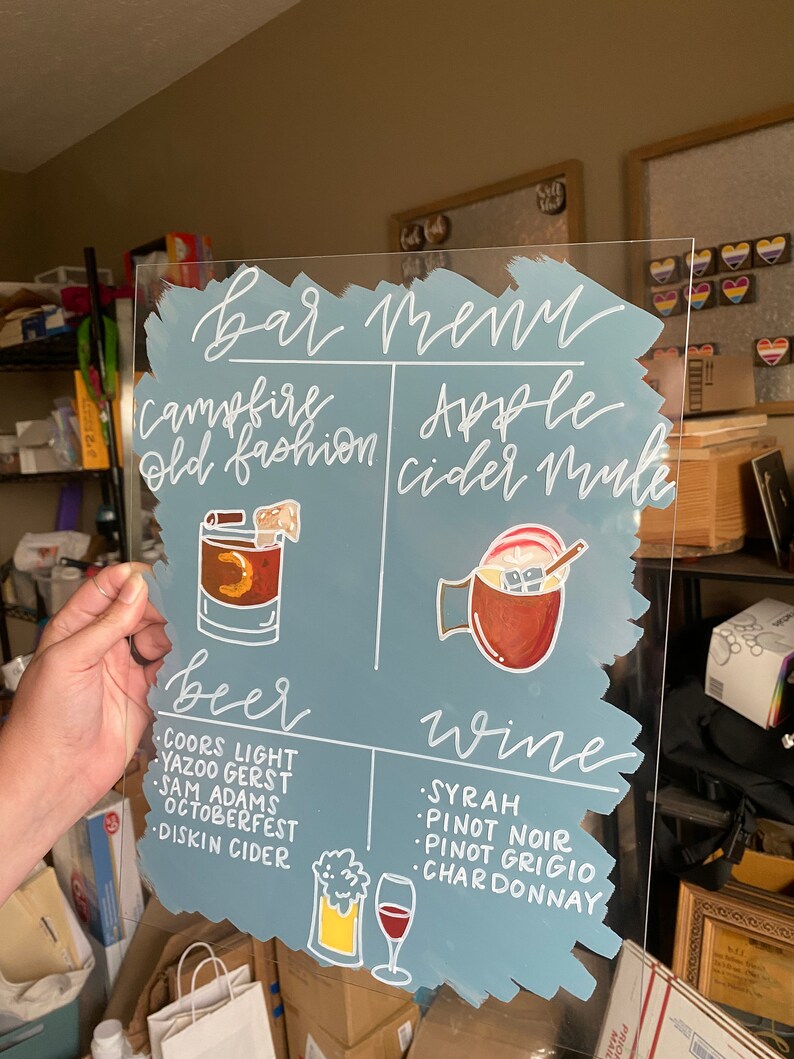 bar menu
campfire
old fashion
Apple
cider mule
beer
• COORS LIGHT
• YAZOO GERST
• SAM ADAMS
OCTOBERFEST
• DISKIN CIDER
wine
• SYRAH
• PINOT NOIR
• PINOT GRIGIO
• CHARDONNAY